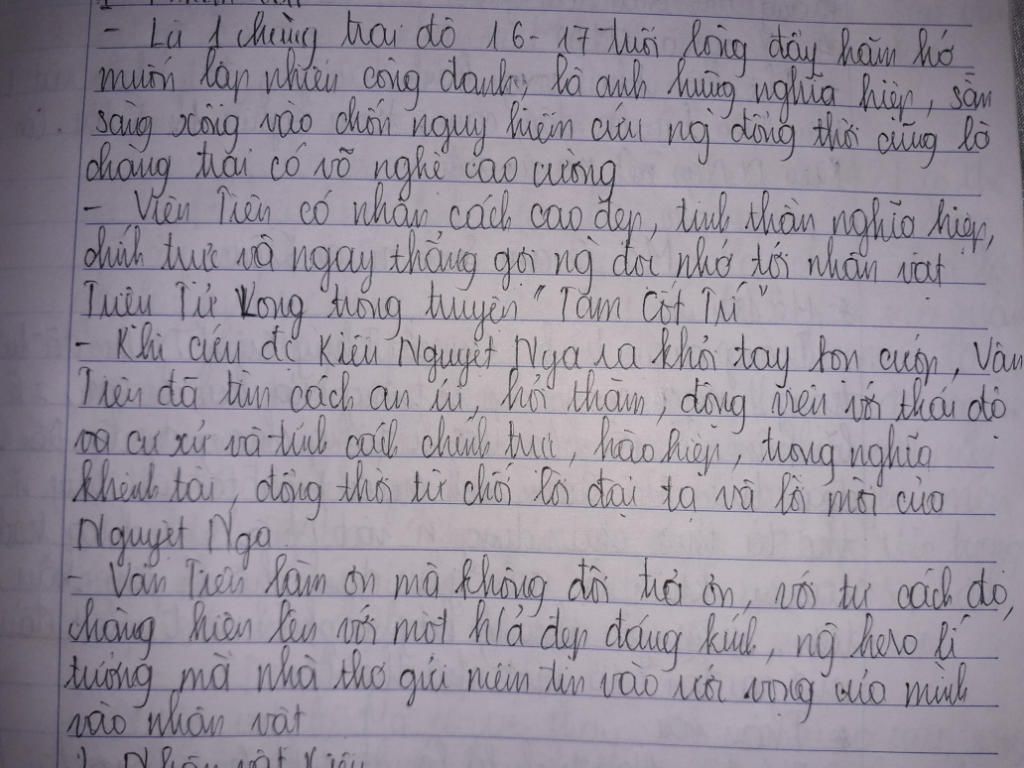 - Là 1 chàng trai độ 16-17 tuổi lòng đầy hăm hở
muốn lập nhiều công danh, là anh hùng nghĩa hiệp, sẵn
sàng xông vào chốn nguy hiểm cứu ng đồng thời cũng là
chàng trai có võ nghệ cao cường
- Viên Tiên có nhân cách cao đẹp, tinh thần nghĩa hiệp,
chính trực và ngay thẳng gợi ng đọc nhớ tới nhân vật
Triệu Tử Long trong truyện "Tam Cốt Trí"
- Khi cứu đc Kiều Nguyệt Nga ra khỏi tay bọn cướp, Vân
Tiên đã tìm cách an ủi, hỏi thăm, động viên với thái độ
và cư xử và tính cách chính trực, hào hiệp, trọng nghĩa
khinh tài, đồng thời từ chối lời đại tạ và lời mời của
Nguyệt Nga
- Vân Tiên làm ơn mà không đòi trả ơn, với tư cách đó,
chàng hiện lên với một h/ả đẹp đáng kính, ng hero lí
tưởng mà nhà thơ gửi niềm tin vào ước vọng của mình
vào nhân vật
Nhân vật Kiều